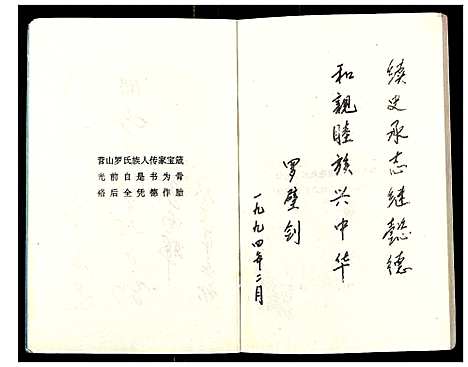 续史承志继懿德
和亲睦族兴中华
罗璧剑
一九九四年二月
营山罗氏族人传家宝箴
光前自是书为骨
裕后全凭德作胎